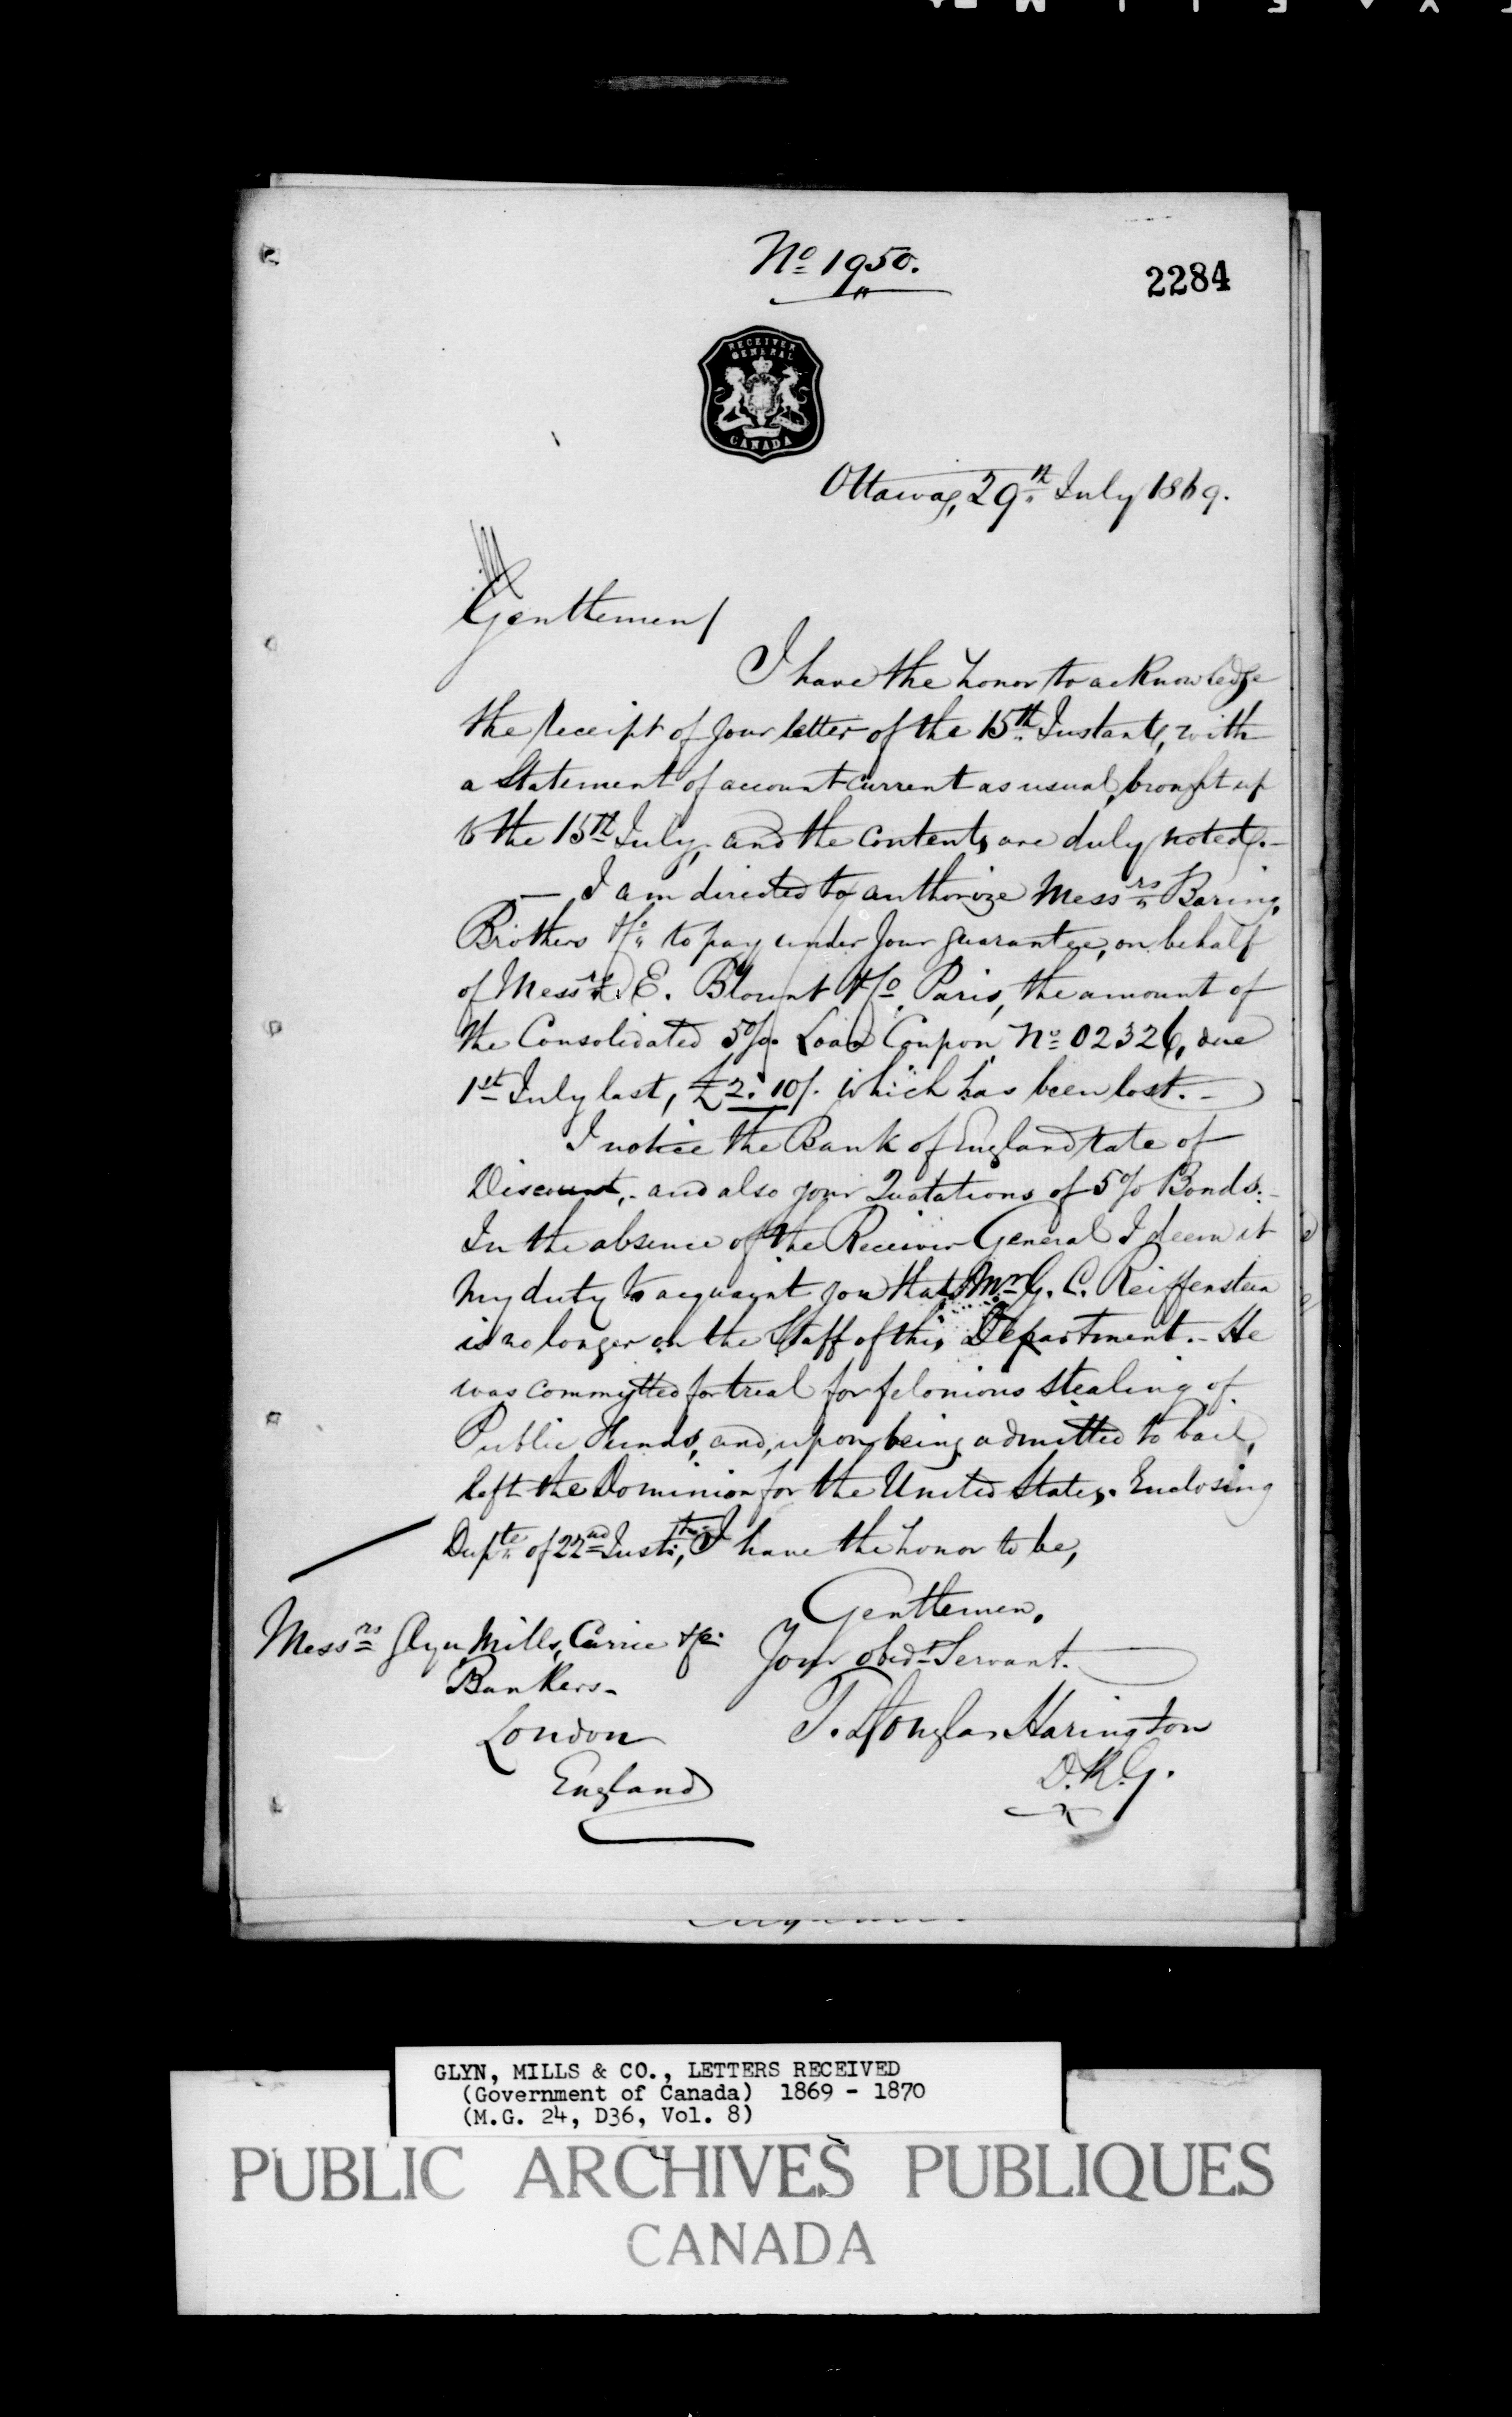 No 1950.
2284
RECEIVER
GENERAL
CANADA
Ottawa, 29th July 1869.
Gentlemen/
I have the honor to acknowledge
the receipt of your letter of the 15th Instant, with
a Statement of account current as usual, brought up
to the 15th July, and the contents are duly noted.-
- I am directed to authorize Messrs Baring,
Brothers &Co to pay under your guarantee, on behalf
of Messrs E. Blount &Co, Paris, the amount of
the Consolidated 5%. Loan Coupon No 02326, due
1st July last, £2.10/. which has been lost.-
I notice the Bank of England rate of
Discount,- and also your Quotations of 5% Bonds.-
In the absence of the Receiver General I deem it
my duty to acquaint you that Mr G. C. Reiffenstein
is no longer on the Staff of this Department.- He
was committed for trial for felonious stealing of
Public Funds, and, upon being admitted to bail,
left the Dominion for the United States. Enclosing
Dupte of 22nd Inst:, I have the honor to be,
Gentlemen,
Your obedt Servant.
Messrs Glyn, Mills, Currie &Co
Bankers-
London
England
T. Douglas Harington
D.R.G.
GLYN, MILLS & CO., LETTERS RECEIVED
(Government of Canada) 1869 - 1870
(M.G. 24, D36, Vol. 8)
PUBLIC ARCHIVES PUBLIQUES
CANADA